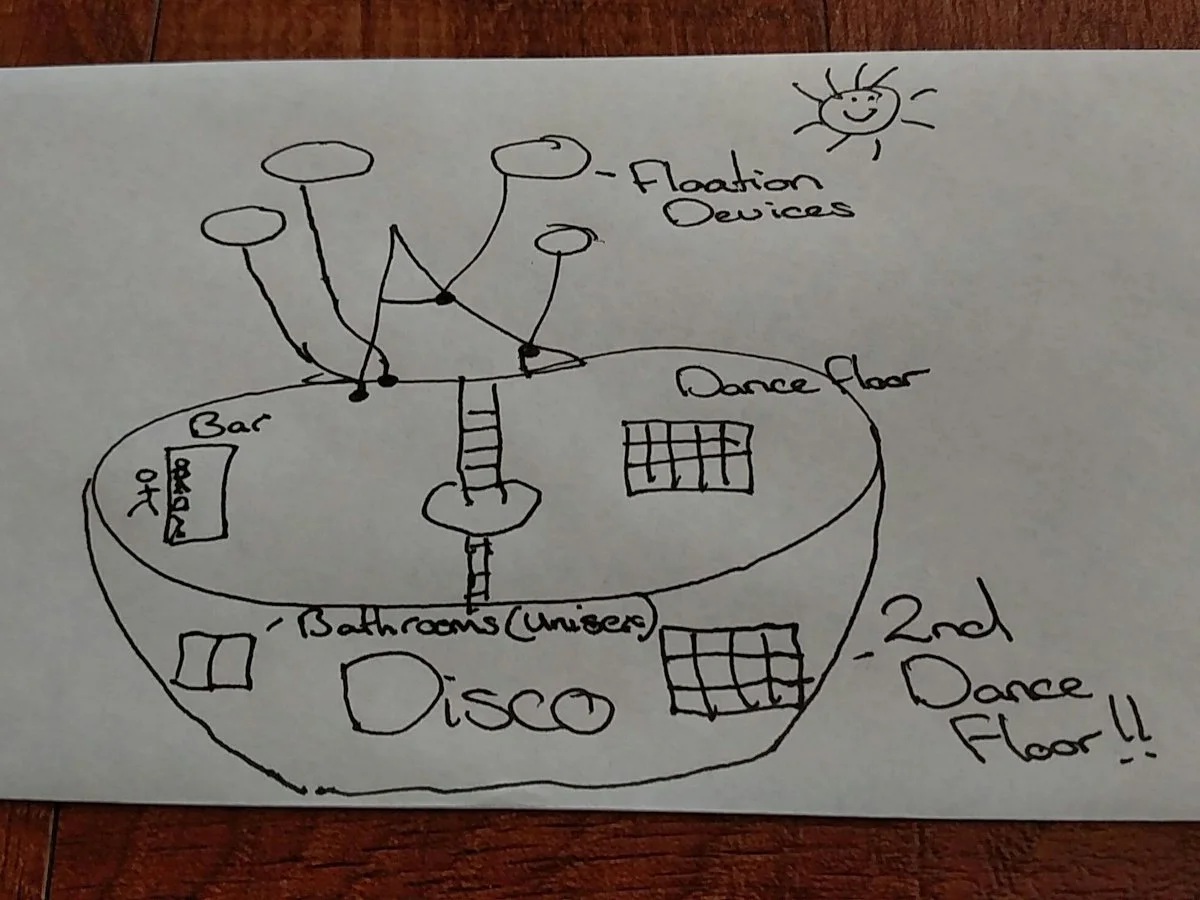 Flaation
Devices
Dance floor
Bar
Bathrooms (unisex)
Disco
2nd
Dance
Floor!!